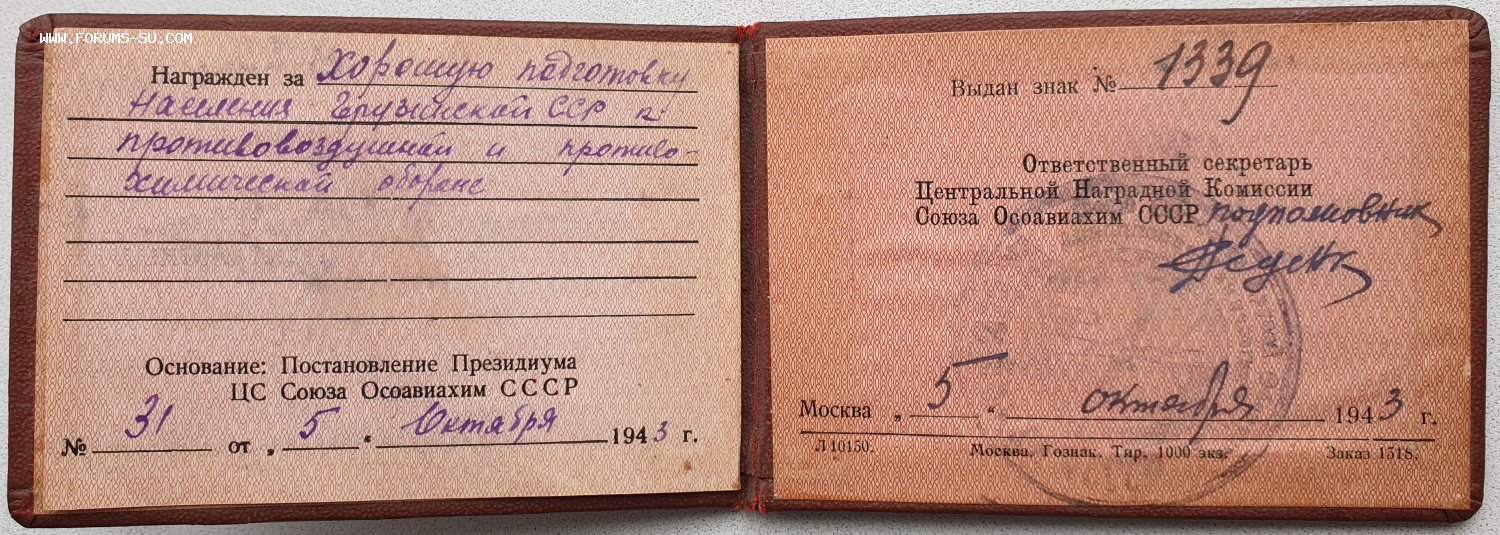 WWW.FORUMS-SU.COM
Награжден за хорошую подготовку
населения Грузинской ССР к
противовоздушной и противо-
химической обороне
Основание: Постановление Президиума
ЦС Союза Осоавиахим СССР
№ 31 от „ 5 “ Октября 1943 г.
Выдан знак № 1339
Ответственный секретарь
Центральной Наградной Комиссии
Союза Осоавиахим СССР подполковник
Москва „ 5 “ октября 1943 г.
Л 10150. Москва. Гознак. Тир. 1000 экз. Заказ 1518.